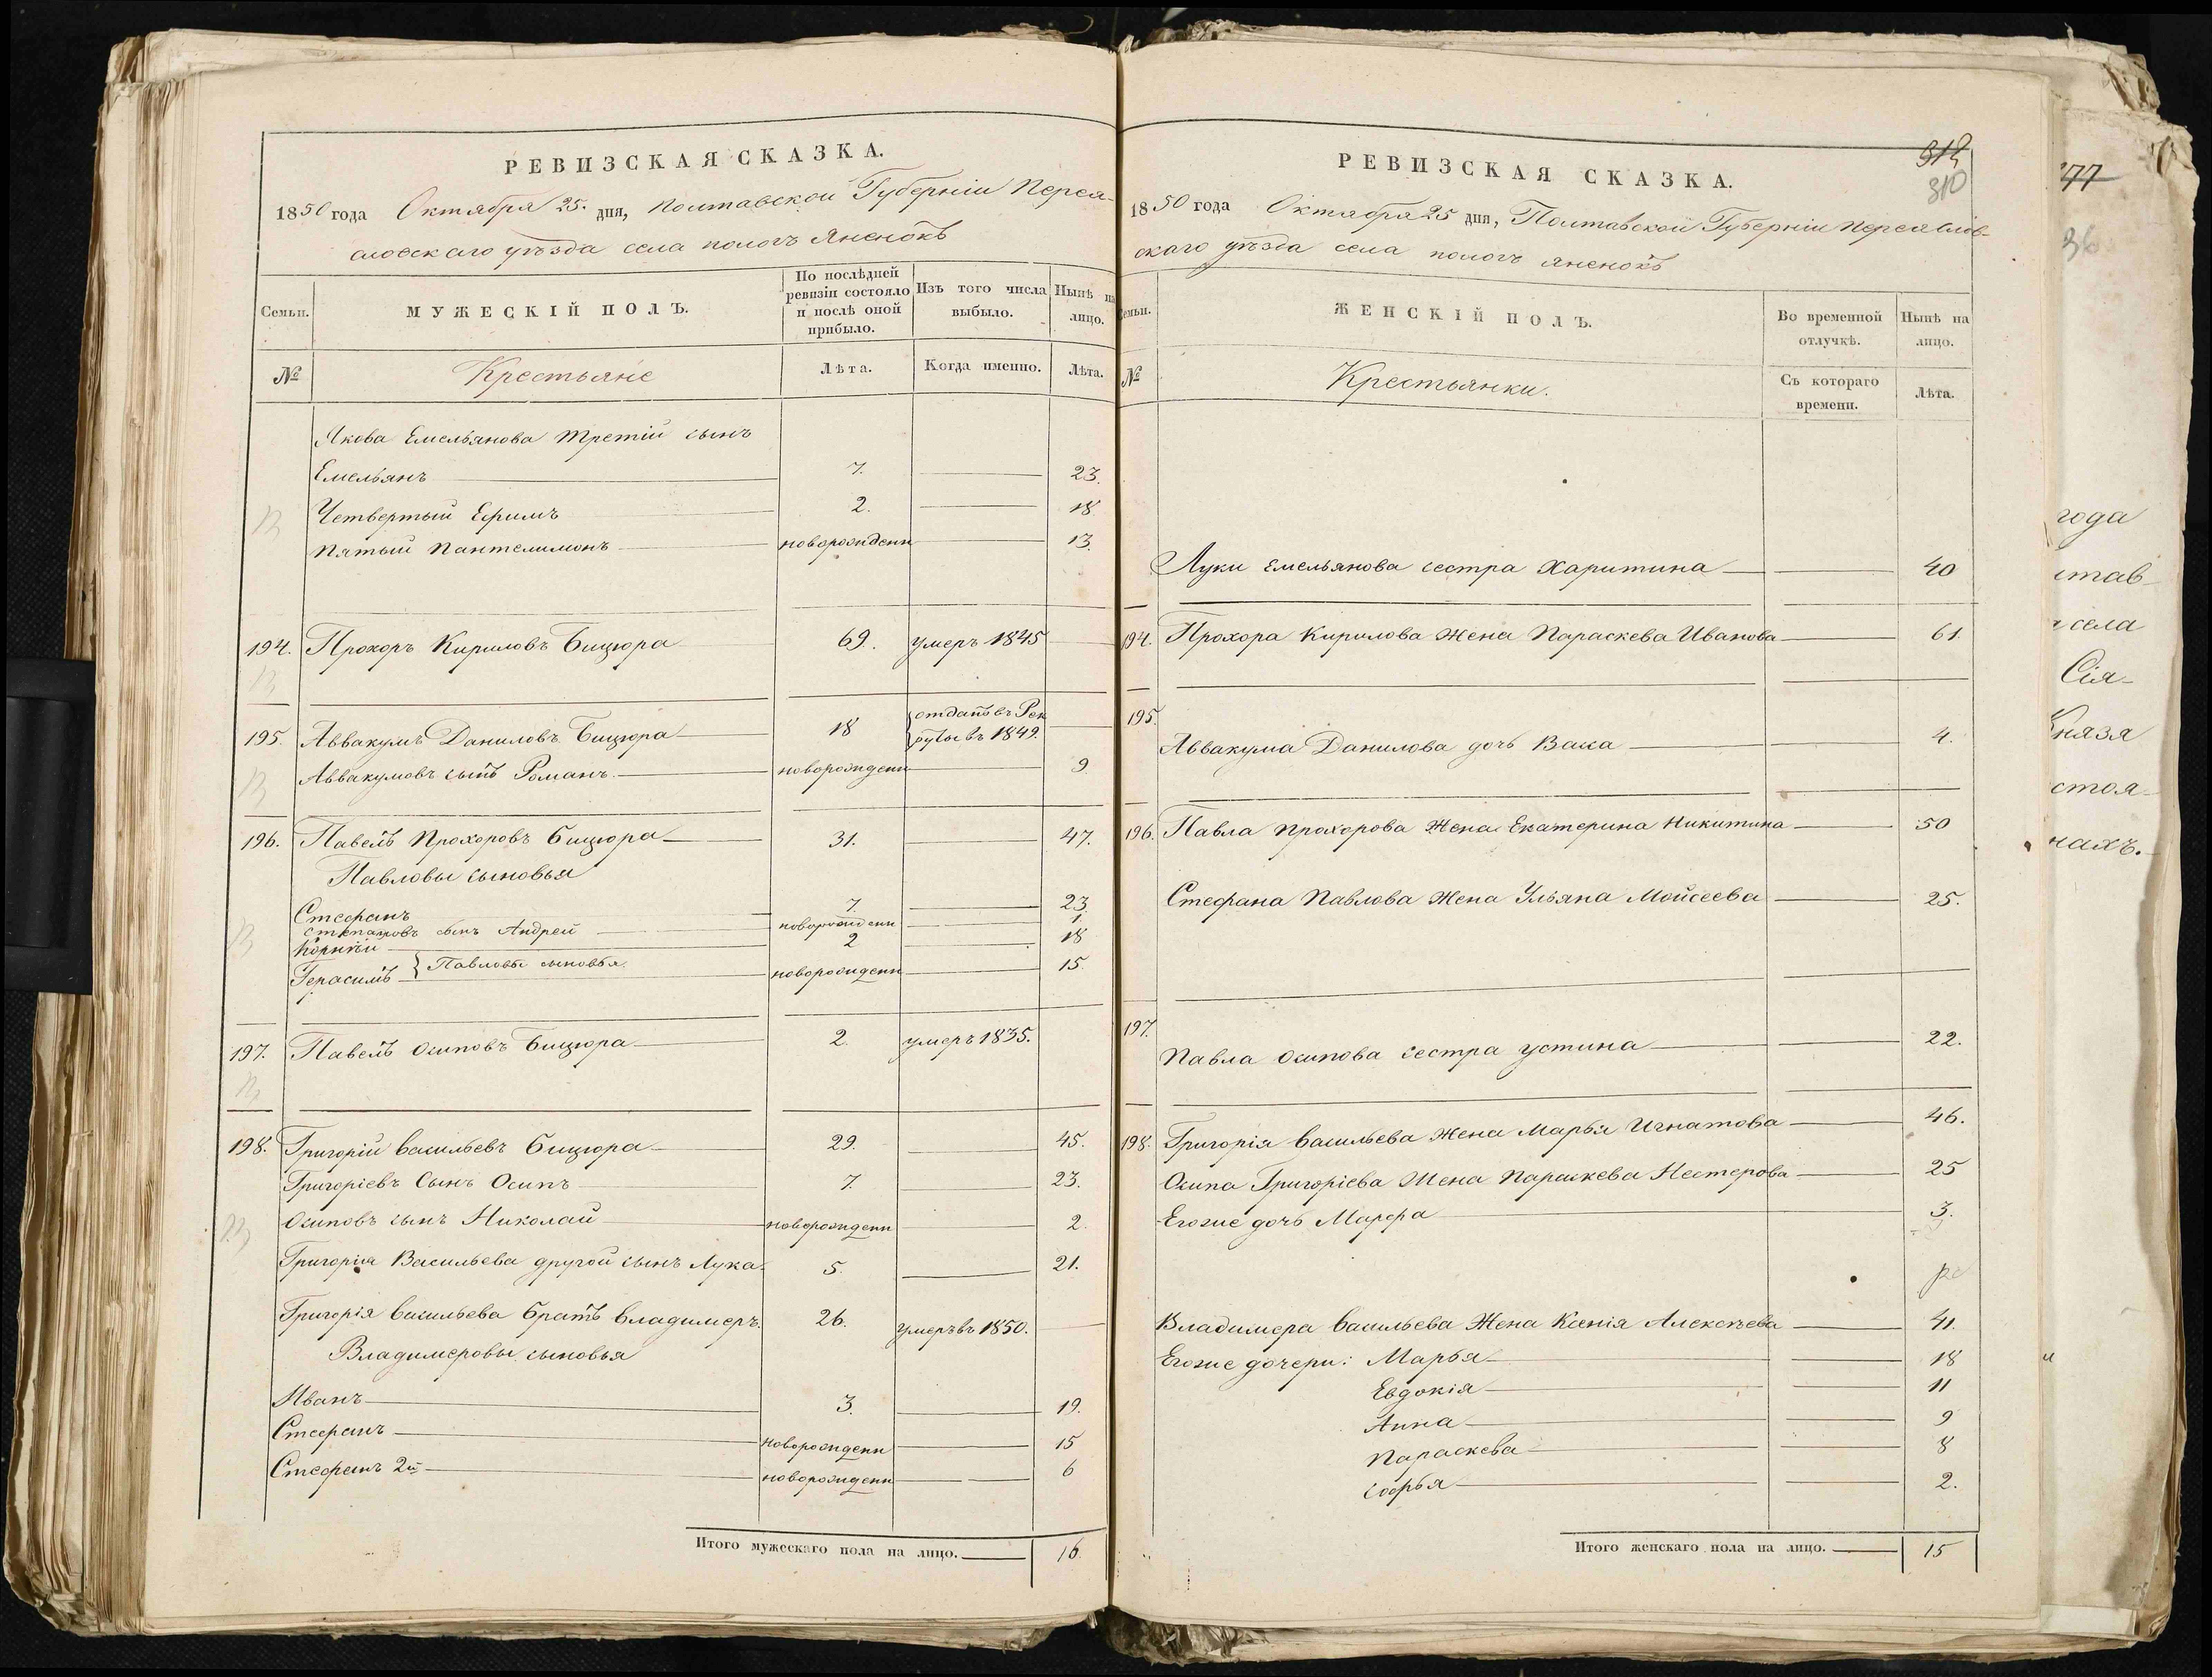 РЕВИЗСКАЯ СКАЗКА.
1850 года Октября 25. дня, Полтавской Губерніи Перея-
славскаго уѣзда села пологъ Яненокъ
Семьи.
МУЖЕСКІЙ ПОЛЪ.
По послѣдней ревизіи состояло и послѣ оной прибыло.
Изъ того числа выбыло.
Нынѣ на лицо.
№
Крестьяне
Лѣта.
Когда именно.
Лѣта.
Якова Емельянова третій сынъ
Емельянъ 7. 23.
Четвертый Ефимъ 2. 18.
Пятый Пантелимонъ новорожденн 13.
194. Прохоръ Кириловъ Бицюра 69. умеръ 1845
195. Аввакумъ Даниловъ Бицюра 18 отданъ въ Рек
руты въ 1849.
Аввакумовъ сынъ Романъ новорожденн 9
196. Павелъ Прохоровъ Бицюра 31. 47.
Павловы сыновья
Стефанъ 7. 23
Степановъ сынъ Андрей новорожденн 1.
Корнѣй 2 18
Герасимъ } Павловы сыновья новорожденн 15.
197. Павелъ Осиповъ Бицюра 2. умеръ 1835.
198. Григорій Васильевъ Бицюра 29. 45.
Григоріевъ Сынъ Осипъ 7. 23.
Осиповъ сынъ Николай новорожденн 2.
Григорія Васильева другой сынъ Лука 5. 21.
Григорія Васильева братъ Владимеръ. 26. умеръ въ 1850.
Владимеровы сыновья
Иванъ 3. 19.
Стефанъ новорожденн 15
Стефанъ 2й новорожденн 6
Итого мужескаго пола на лицо. 16.
312
310
РЕВИЗСКАЯ СКАЗКА.
1850 года Октября 25 дня, Полтавской Губерніи Переяслав-
скаго уѣзда села пологъ Яненокъ
Семьи.
ЖЕНСКІЙ ПОЛЪ.
Во временной отлучкѣ.
Нынѣ на лицо.
№
Крестьянки.
Съ котораго времени.
Лѣта.
Луки Емельянова сестра Харитина 40
194. Прохора Кирилова Жена Параскева Иванова 61.
195.
Аввакума Данилова дочь Васса 4.
196. Павла Прохорова Жена Екатерина Никитина 50
Стефана Павлова Жена Ульяна Мойсеева 25.
197.
Павла Осипова сестра Устина 22.
198. Григорія Васильева Жена Марья Игнатова 46.
Осипа Григоріева Жена Параскева Нестерова 25
Егоже дочь Марфа 3.
Владимера Васильева Жена Ксенія Алексѣева 41.
Егоже дочери: Марья 18
Евдокія 11
Анна 9
Параскева 8
Софья 2.
Итого женскаго пола на лицо. 15
77
36
года
став
села
Сія-
Князя
стоя-
нахъ.